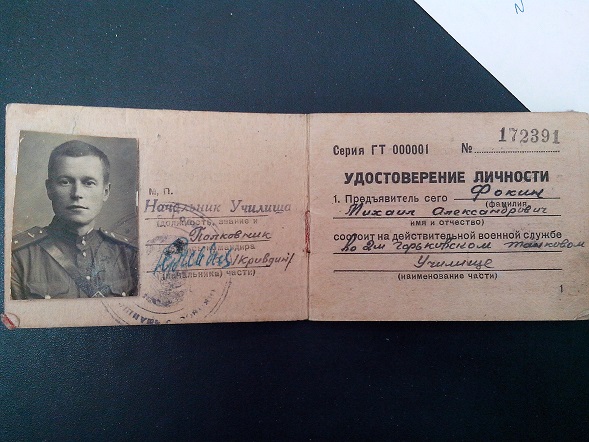 М. П.
Начальник Училища
(должность, звание и
Полковник
командира
/Кривдин/
(начальника) части)
Серия ГТ 000001 № 172391
УДОСТОВЕРЕНИЕ ЛИЧНОСТИ
1. Предъявитель сего Фокин
(фамилия,
Михаил Александрович
имя и отчество)
состоит на действительной военной службе
во 2м Горьковском танковом
Училище
(наименование части)
1